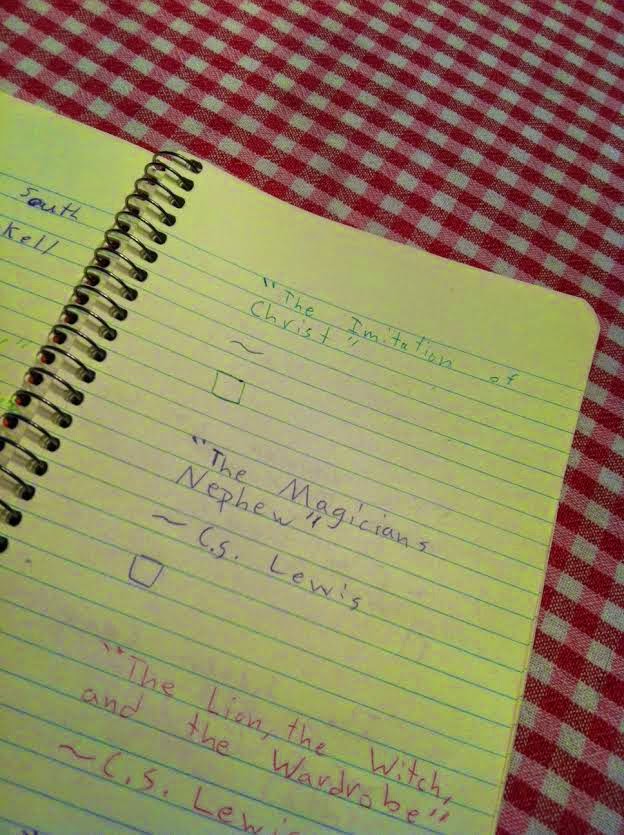 South
Kell
"The Imitation of
Christ"
~
"The Magicians
Nephew"
~ C.S. Lewis
"The Lion, the Witch,
and the Wardrobe"
~ C.S. Lewis